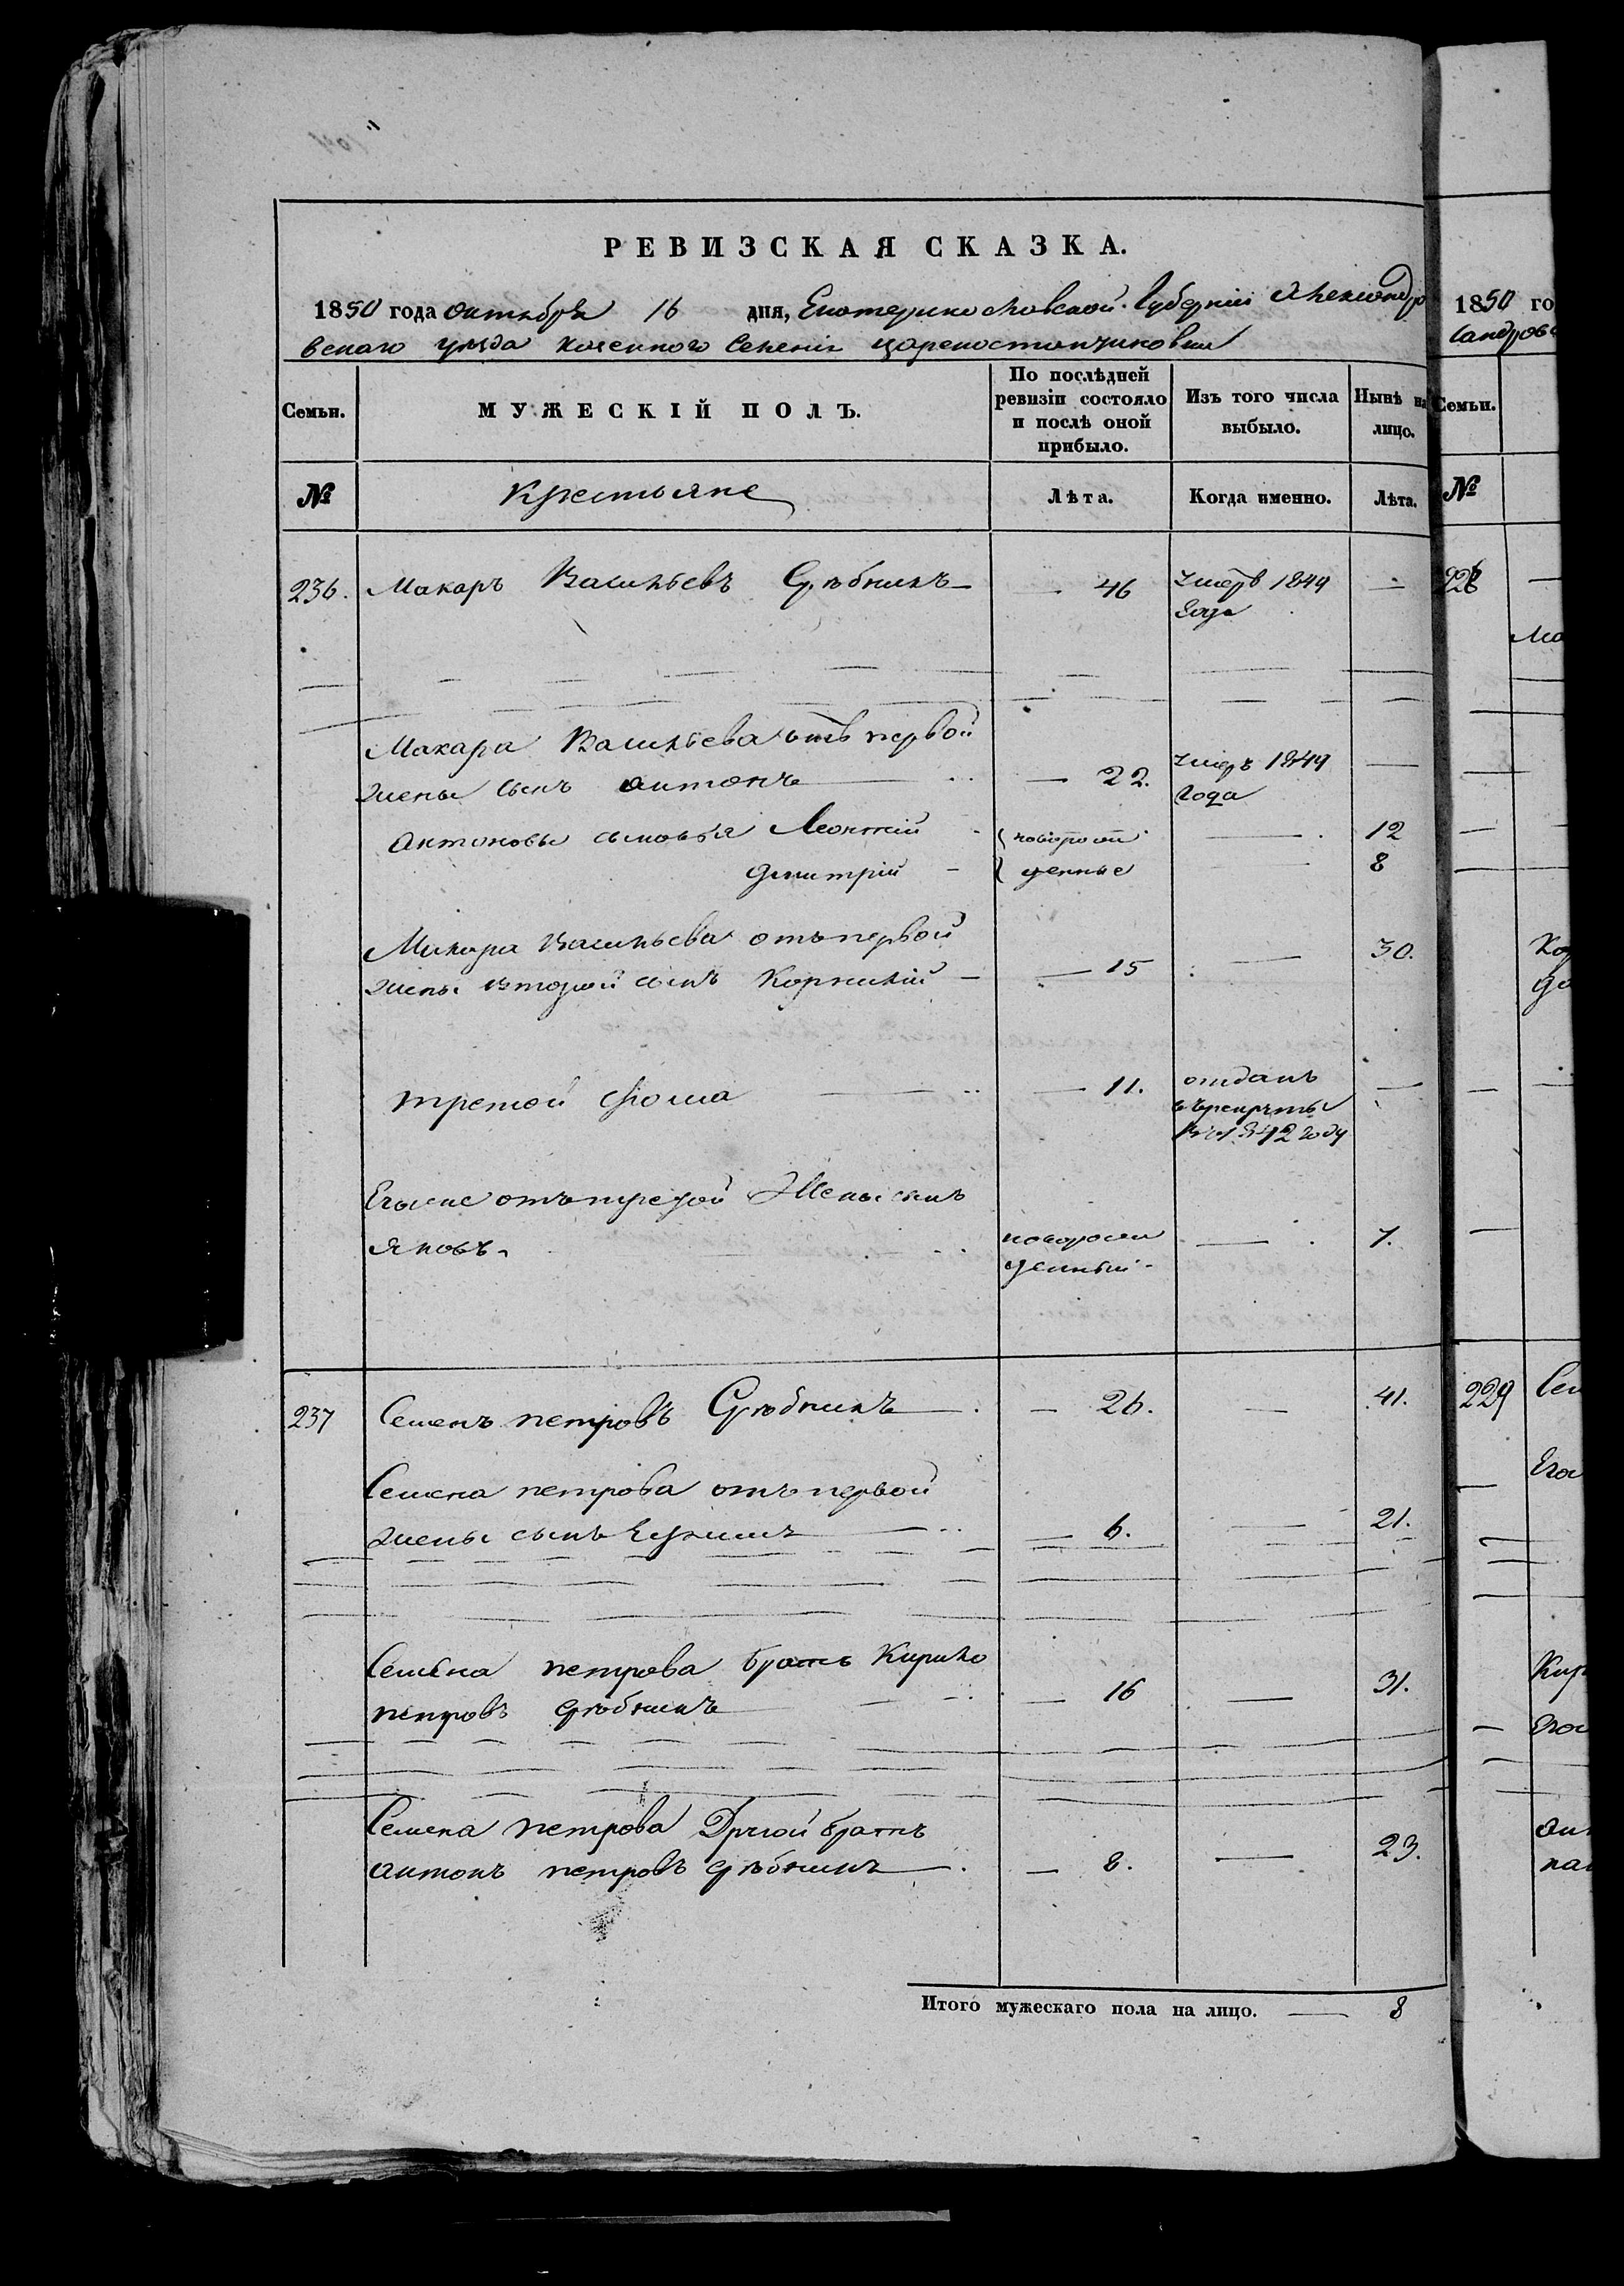 РЕВИЗСКАЯ СКАЗКА.
1850 года октября 16 дня, Екатеринославской Губернии Александро
вскаго уезда казенного Селения
Семьи. МУЖЕСКІЙ ПОЛЪ. По послѣдней ревизіи состояло и послѣ оной прибыло. Изъ того числа выбыло. Нынѣ на лицо.
№ Крестьяне Лѣта. Когда именно. Лѣта.
236. Макаръ Васильевъ — 46 умеръ 1849 —
года
Макара Васильева отъ первой
жены сынъ антонъ — 22. умеръ 1849 —
года
Антоновы сыновья Леонтій новорож — 12
Дмитрій денные — 8
Макара Васильева отъ первой
жены второй сынъ Корнилій — 15 — 30.
третой Фома — 11. отданъ —
въ рекруты
въ 1842 году
Егоже отъ третой Жены сынъ
Яковъ. новорож — 7.
денный
237 Семенъ петровъ — 26. — 41.
Семена петрова отъ первой
жены сынъ — 6. — 21.
Семена петрова братъ Кирило
петровъ — 16 — 31.
Семена петрова Другой братъ
антонъ петровъ — 8. — 23.
Итого мужескаго пола на лицо. — 8
1850 го
сандров
Семьи.
№
229 Сем
Его
Кир
Его